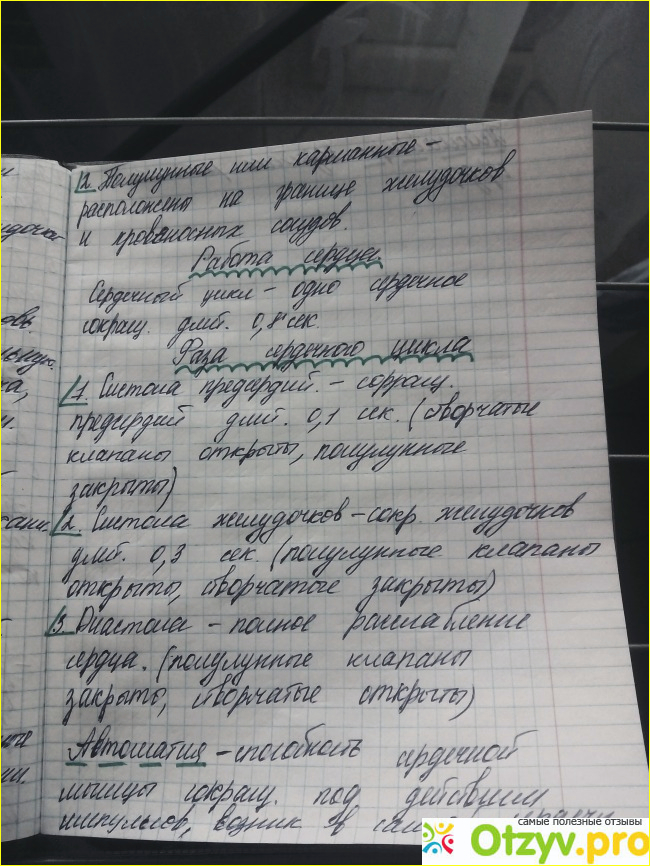 2. Полулунные или карманные -
расположены на границе желудочков
и кровяносных сосудов.
Работа сердца.
Сердечный цикл - одно сердечное
сокращ. длит. 0,8 сек.
Фаза сердечного цикла
1. Систола предсердий. - соркащ.
предсердий длит. 0,1 сек. (створчатые
клапаны открыты, полулунные
закрыты)
2. Систола желудочков - сокр. желудочков
длит. 0,3 сек. (полулунные клапаны
открыто, створчатые закрыты)
3. Диастола - полное расслабление
сердца. (полулунные клапаны
закрыто, створчатые открыты)
Автоматия - способность сердечной
мышцы сокращ. под действием
импульсов, возник в
самые полезные отзывы
Otzyv.pro